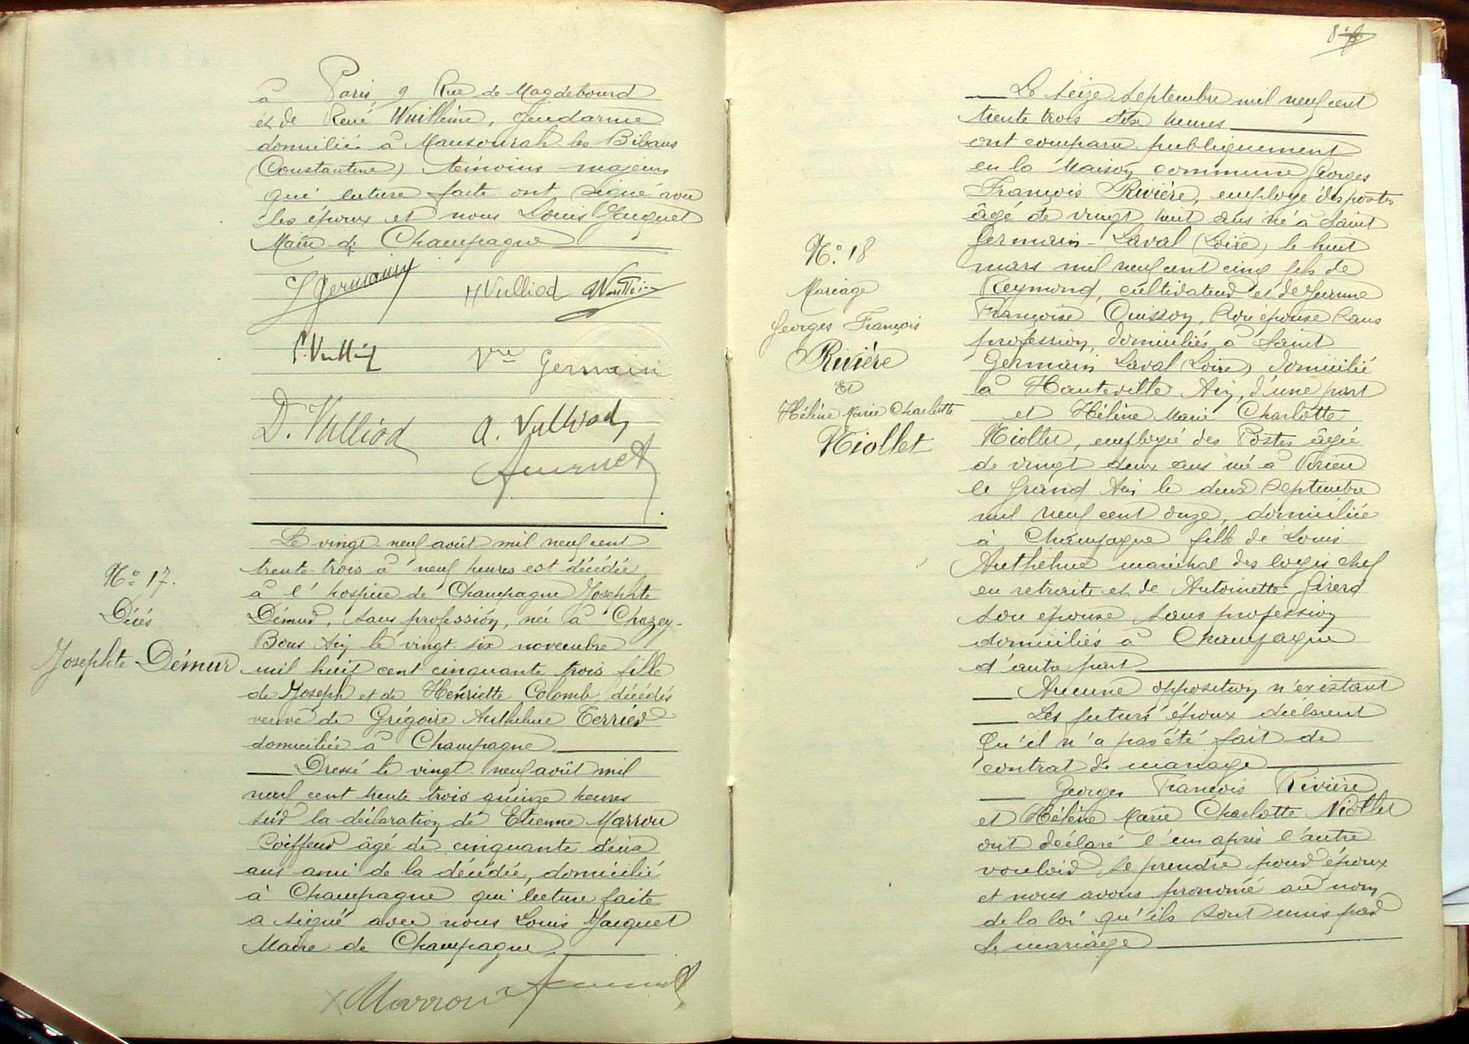 à Paris 9 Rue de Magdebourd
et de René Wuillème, gendarme
domicilié à Mansourah les Bibans
(Constantine) témoins majeurs
qui lecture faite ont signé avec
les époux et nous Louis Jacquet
Maire de Champagne
J Germain
H Vulliod
Vve Germain
D. Vulliod
A. Vulliod
N° 17.
Décès
Josephte Démur
Le vingt neuf août mil neuf cent
trente trois à neuf heures est décédée
à l'hospice de Champagne Josephte
Démur, sans profession, née à Chazey-
Bons Ain le vingt six novembre
mil huit cent cinquante trois fille
de Joseph et de Henriette Colomb décédés
veuve de Grégoire Anthelme Terrier
domiciliée à Champagne
Dressé le vingt neuf août mil
neuf cent trente trois quinze heures
sur la déclaration de Etienne Marron
Coiffeur âgé de cinquante deux
ans ami de la décédée, domicilié
à Champagne qui lecture faite
a signé avec nous Louis Jacquet
Maire de Champagne
Marron
N° 18
Mariage
Georges François
Rivière
et
Hélène Marie Charlotte
Niollet
Le seize septembre mil neuf cent
trente trois dix heures
ont comparu publiquement
en la Maison commune Georges
François Rivière, employé des postes
âgé de vingt huit ans né à Saint
Germain-Laval (Loire) le huit
mars mil neuf cent cinq fils de
Reymond, cultivateur et de Jeanne
Françoise Ouisson, son épouse sans
profession, domiciliés à Saint
Germain Laval (Loire) domicilié
à Hauteville Ain, d'une part
et Hélène Marie Charlotte
Niollet, employé des Postes âgée
de vingt deux ans née à Virieu
le Grand Ain le deux septembre
mil neuf cent onze, domiciliée
à Champagne fille de Louis
Anthelme maréchal des logis chef
en retraite et de Antoinette Girerd
son épouse sans profession
domiciliés à Champagne
d'autre part
Aucune opposition n'existant
Les futurs époux déclarent
qu'il n'a pas été fait de
contrat de mariage
Georges François Rivière
et Hélène Marie Charlotte Niollet
ont déclaré l'un après l'autre
vouloir se prendre pour époux
et nous avons prononcé au nom
de la loi qu'ils sont unis par
le mariage